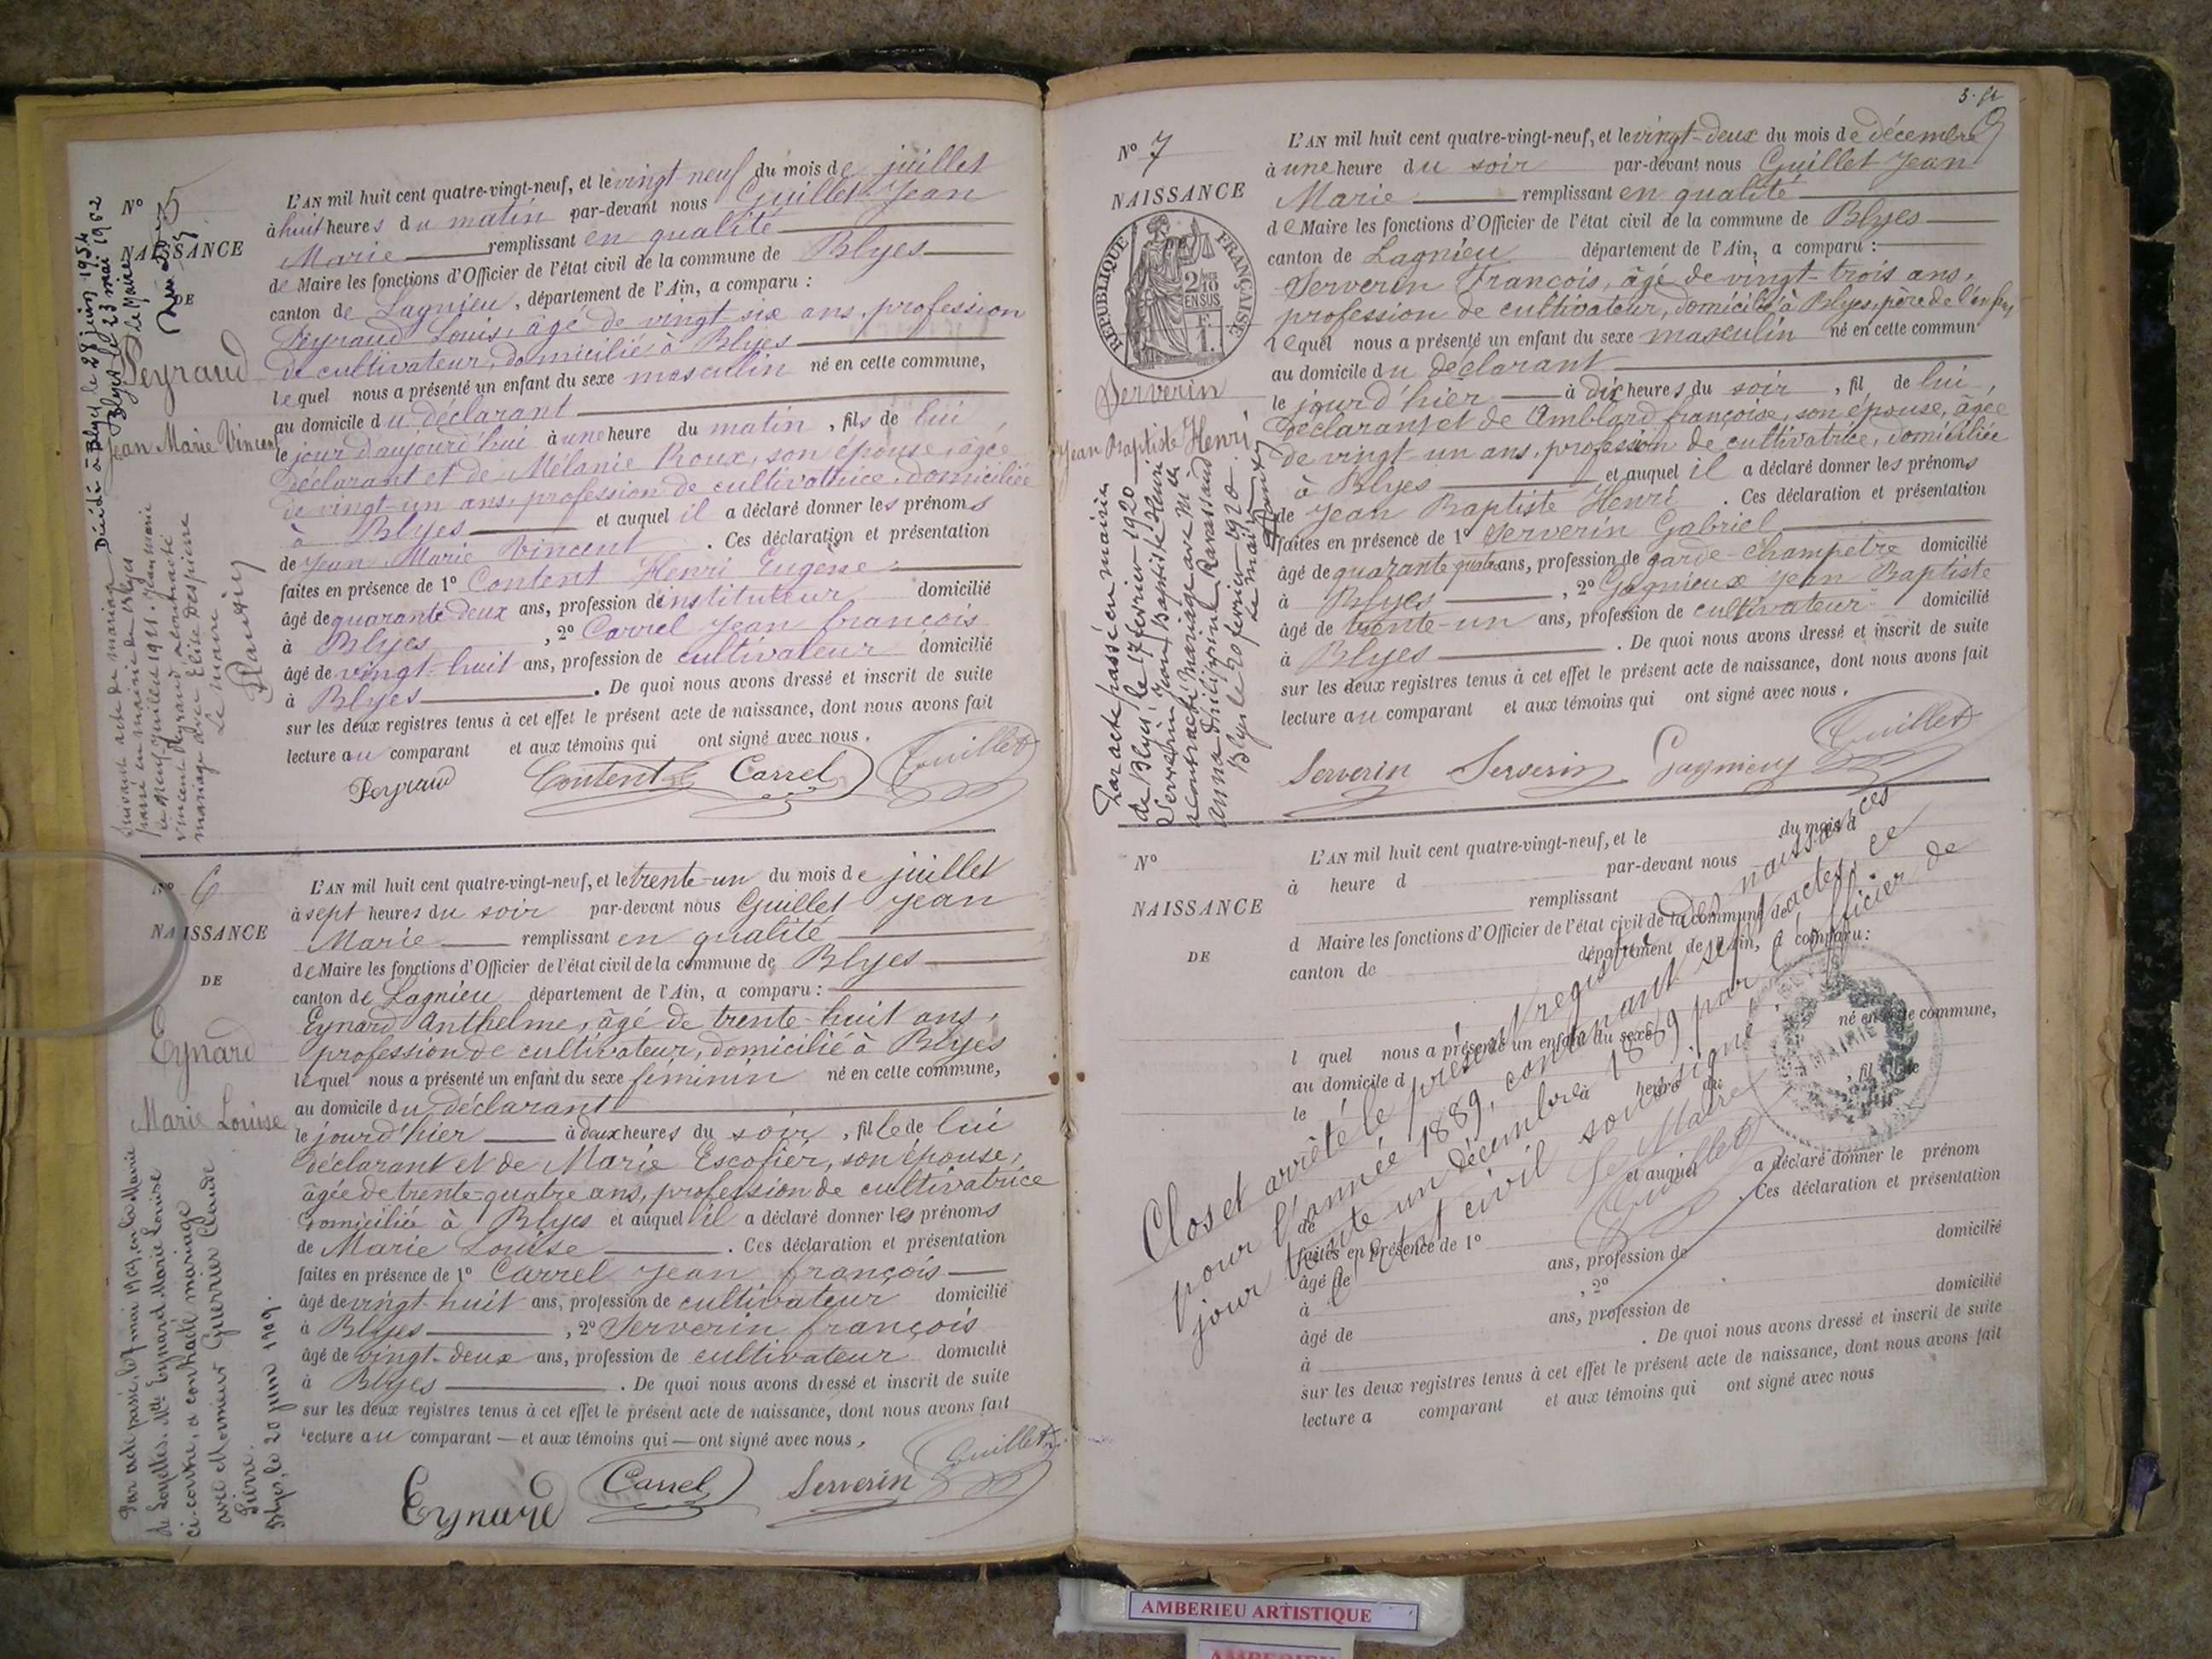 N° 5
NAISSANCE
DE
Peyraud
Jean Marie Vincent
L'AN mil huit cent quatre-vingt-neuf, et le vingt-neuf du mois de juillet
à huit heures du matin par-devant nous Guillet Jean
Marie remplissant en qualité
de Maire les fonctions d'Officier de l'état civil de la commune de Blyes
canton de Lagnieu, département de l'Ain, a comparu :
Peyraud Louis, âgé de vingt-six ans, profession
de cultivateur, domicilié à Blyes
lequel nous a présenté un enfant du sexe masculin né en cette commune,
au domicile du déclarant
le jour d'aujourd'hui à une heure du matin, fils de lui
déclarant et de Mélanie Roux, son épouse, âgée
de vingt-un ans, profession de cultivatrice, domiciliée
à Blyes et auquel il a déclaré donner les prénoms
de Jean Marie Vincent. Ces déclaration et présentation
faites en présence de 1° Content Henri Eugène
âgé de quarante-deux ans, profession d'instituteur domicilié
à Blyes, 2° Carrel Jean françois
âgé de vingt-huit ans, profession de cultivateur domicilié
à Blyes. De quoi nous avons dressé et inscrit de suite
sur les deux registres tenus à cet effet le présent acte de naissance, dont nous avons fait
lecture au comparant et aux témoins qui ont signé avec nous.
Peyraud Content Carrel Guillet
Suivant acte de mariage
passé en mairie de Blyes
le neuf juillet 1921, Jean marie
vincent Peyraud a contracté
mariage avec Elise Despierre
Le maire
Décédé à Blyes le 28 juin 1954
Blyes le 23 mai 1962
le Maire
N° 6
NAISSANCE
DE
Eynard
Marie Louise
L'AN mil huit cent quatre-vingt-neuf, et le trente-un du mois de juillet
à sept heures du soir par-devant nous Guillet Jean
Marie remplissant en qualité
de Maire les fonctions d'Officier de l'état civil de la commune de Blyes
canton de Lagnieu département de l'Ain, a comparu :
Eynard Anthelme, âgé de trente-huit ans,
profession de cultivateur, domicilié à Blyes
lequel nous a présenté un enfant du sexe féminin né en cette commune,
au domicile du déclarant
le jour d'hier à deux heures du soir, fille de lui
déclarant et de Marie Escofier, son épouse,
âgée de trente-quatre ans, profession de cultivatrice
domiciliée à Blyes et auquel il a déclaré donner les prénoms
de Marie Louise. Ces déclaration et présentation
faites en présence de 1° Carrel Jean françois
âgé de vingt-huit ans, profession de cultivateur domicilié
à Blyes, 2° Serverin françois
âgé de vingt-deux ans, profession de cultivateur domicilié
à Blyes. De quoi nous avons dressé et inscrit de suite
sur les deux registres tenus à cet effet le présent acte de naissance, dont nous avons fait
lecture au comparant et aux témoins qui ont signé avec nous,
Eynard Carrel Serverin Guillet
Par acte passé, le 7 mai 1909, en la Mairie
de Loyettes, Mlle Eynard Marie Louise
ci-contre, a contracté mariage
avec Monsieur Guerrier Claude
Pierre.
Blyes, le 20 juin 1909.
N° 7
NAISSANCE
REPUBLIQUE FRANÇAISE
2/10 EN SUS
Serverin
Jean Baptiste Henri
L'AN mil huit cent quatre-vingt-neuf, et le vingt-deux du mois de décembre
à une heure du soir par-devant nous Guillet Jean
Marie remplissant en qualité
de Maire les fonctions d'Officier de l'état civil de la commune de Blyes
canton de Lagnieu département de l'Ain, a comparu :
Serverin Francois, âgé de vingt-trois ans,
profession de cultivateur, domicilié à Blyes, père de l'enfant
lequel nous a présenté un enfant du sexe masculin né en cette commun
au domicile du déclarant
le jour d'hier à dix heures du soir, fil de lui,
déclarant et de Amblard françoise, son épouse, âgée
de vingt-un ans, profession de cultivatrice, domiciliée
à Blyes et auquel il a déclaré donner les prénoms
de Jean Baptiste Henri. Ces déclaration et présentation
faites en présence de 1° Serverin Gabriel
âgé de quarante quatre ans, profession de garde-champêtre domicilié
à Blyes, 2° Gagnieux Jean Baptiste
âgé de trente-un ans, profession de cultivateur domicilié
à Blyes. De quoi nous avons dressé et inscrit de suite
sur les deux registres tenus à cet effet le présent acte de naissance, dont nous avons fait
lecture au comparant et aux témoins qui ont signé avec nous.
Serverin Serverin Gagnieux Guillet
Par acte passé en mairie
de Blyes, le 17 février 1920
Serverin Jean Baptiste Henri
a contracté mariage avec Mlle
Blyes le 20 fevrier 1920
Le maire
N°
NAISSANCE
DE
L'AN mil huit cent quatre-vingt-neuf, et le du mois d
à heure d par-devant nous
remplissant
d Maire les fonctions d'Officier de l'état civil de la commune de
canton de département de l'Ain, a comparu :
l quel nous a présenté un enfant du sexe né en cette commune,
au domicile d
le à heure du , fil de
et auquel a déclaré donner le prénom
de . Ces déclaration et présentation
faites en présence de 1°
âgé de ans, profession de domicilié
à , 2°
âgé de ans, profession de domicilié
à . De quoi nous avons dressé et inscrit de suite
sur les deux registres tenus à cet effet le présent acte de naissance, dont nous avons fait
lecture a comparant et aux témoins qui ont signé avec nous
Clos et arrêté le présent registre des naissances
pour l'année 1889, contenant sept actes, ce
jour trente un décembre 1889 par l'officier de
l'Etat civil soussigné.
Le Maire
Guillet
MAIRIE
AMBERIEU ARTISTIQUE
AMBERIEU